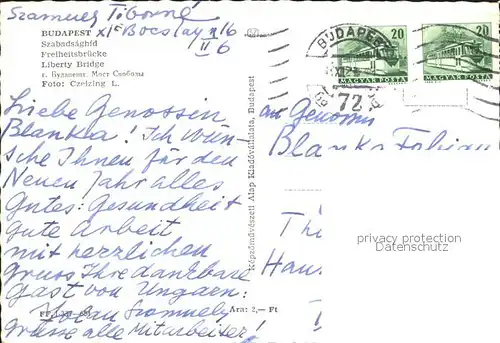 Szamuely Tiborné
BUDAPEST XIe Bocskay u 16
II 6
Szabadsághíd
Freiheitsbrücke
Liberty Bridge
г. Будапешт. Мост Свободы
Foto: Czeizing L.
Liebe Genossin
Blanka! Ich wün-
sche Ihnen für den
Neuen Jahr alles
Gutes: Gesundheit
gute Arbeit
mit herzlichen
Gruss Ihre dankbare
Gast von Ungarn:
Szamuely
Grüsse alle Mitarbeiter!
Ára: 2,— Ft
Képzőművészeti Alap Kiadóvállalata, Budapest
BUDAPEST
72
20
MAGYAR POSTA
20
MAGYAR POSTA
an Genossin
Blanka Fabian
Th
Haus
privacy protection
DOMAINS